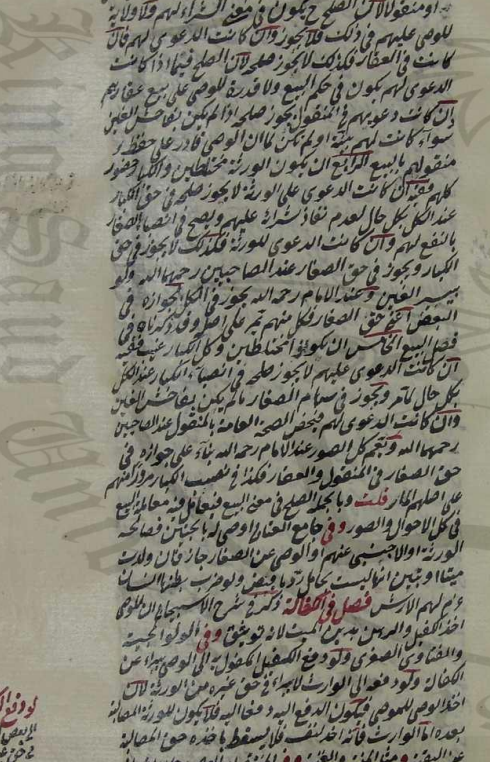 او منقولا لان الصلح ح يكون في معنى الشراء لهم ولا ولاية
للوصي عليهم في ذلك فلا يجوز وان كانت الدعوى لهم فان
كانت في العقار فكذلك لا يجوز صلحه لان الصلح فيما اذا كانت
الدعوى لهم يكون في حكم البيع ولا قدرة للوصي على بيع عقارهم
وان كانت دعويهم في المنقول يجوز صلحه اذا لم يكن بفاحش الغبن
سواء كانت لهم بينة او لم تكن لما ان الوصي قادر على حفظ
منقولهم بالبيع الرابع ان يكون الورثة مختلطين والكبار حضور
كلهم ففيه ان كانت الدعوى على الورثة لا يجوز صلحه في حق الكبار
عند الكل بكل حال لعدم نفاذ شرائه عليهم ويصح في انصباء الصغار
بالنفع لهم وان كانت الدعوى للورثة فكذلك لا يجوز في حق
الكبار ويجوز في حق الصغار عند الصاحبين رحمهما الله ولو
بيسير الغبن وعند الامام رحمه الله يجوز في الكل لجوازه في
البعض اعني حق الصغار فكل منهم مر على اصله وقد ذكرناه في
فصل البيع الخامس ان يكونوا مختلطين وكل الكبار غيب ففيه
ان كانت الدعوى عليهم لا يجوز صلحه في انصباء الكبار عند الكل
بكل حال لما مر ويجوز في سهام الصغار ما لم يكن بفاحش الغبن
وان كانت الدعوى لهم فيخص الصحة العامة بالمنقول عند الصاحبين
رحمهما الله وتعم كل الصور عند الامام رحمه الله بناء على جوازه في
حق الصغار في المنقول والعقار فكذا في نصيب الكبار مرورا منهم
على اصلهم المار قلت وبالجملة الصلح في معنى البيع فيعامل فيه معاملة البيع
في كل الاحوال والصور وفي جامع الفتاوى اوصى له بالجنين فصالحه
الورثة او الاجنبي عنهم او الوصي عن الصغار جاز فان ولدت
ميتا او تبين انها ليست بحامل رد ما قبض ولو ضرب بطنها انسان
غرم لهم الارش فصل في الكفالة ذكر في شرح الاسبيجابي ان للوصي
اخذ الكفيل والرهن بدين الميت لانه توثيق وفي الولوالجية
والفتاوى الصغرى ولو دفع الكفيل المكفول به الى الوصي يبرأ عن
الكفالة ولو دفعه الى الوارث لا يبرأ في حق غيره من الورثة لان
اخذ الوصي للموصي فيكون الدفع اليه دفعا اليه فلا يكون للورثة المطالبة
بعده اما الوارث فانه اخذ لنفسه فلا يسقط باخذه حق المطالبة
لو دفع